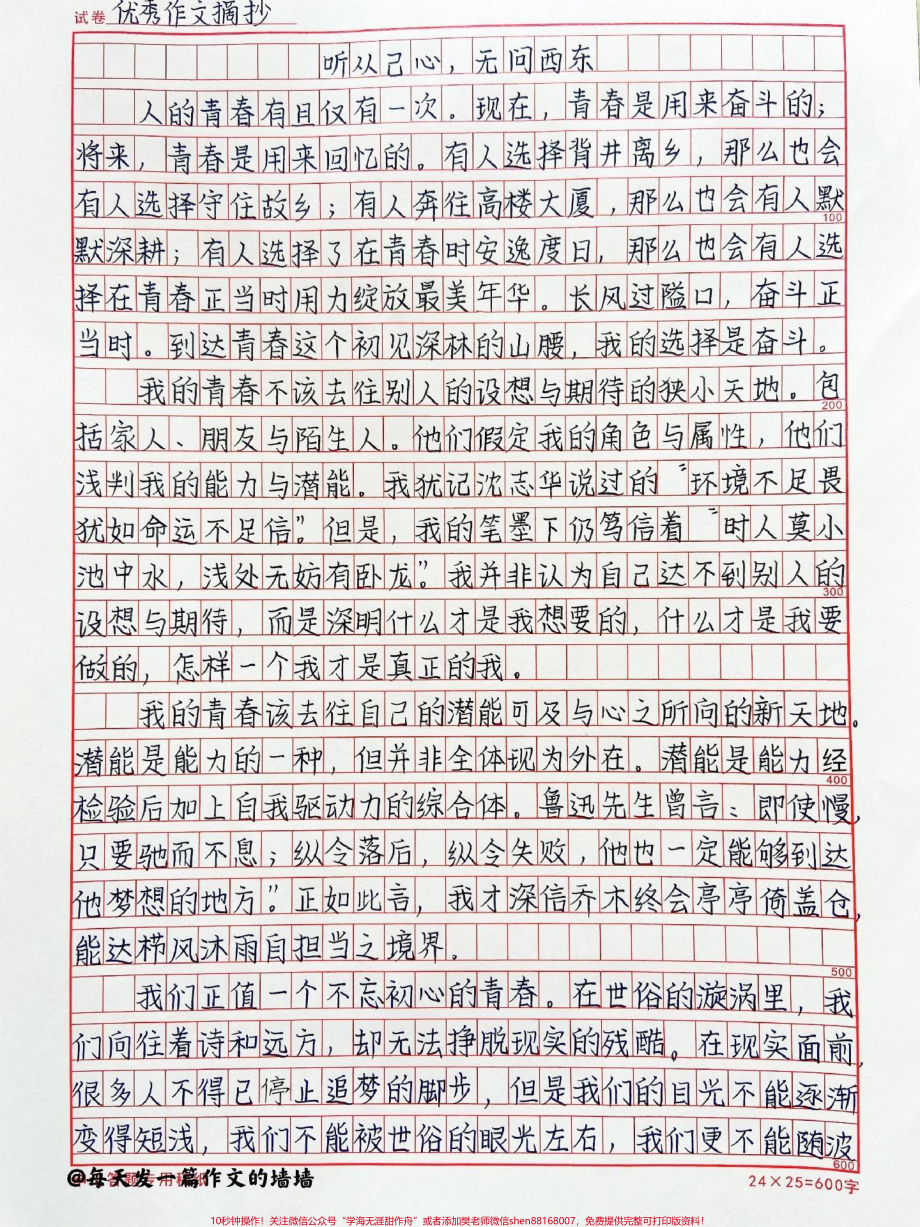 试卷 优秀作文摘抄
听从己心，无问西东
人的青春有且仅有一次。现在，青春是用来奋斗的；
将来，青春是用来回忆的。有人选择背井离乡，那么也会
有人选择守住故乡；有人奔往高楼大厦，那么也会有人默
100
默深耕；有人选择了在青春时安逸度日，那么也会有人选
择在青春正当时用力绽放最美年华。长风过隘口，奋斗正
当时。到达青春这个初见深林的山腰，我的选择是奋斗。
我的青春不该去往别人的设想与期待的狭小天地。包
200
括家人、朋友与陌生人。他们假定我的角色与属性，他们
浅判我的能力与潜能。我犹记沈志华说过的“环境不足畏
犹如命运不足信”。但是，我的笔墨下仍笃信着“时人莫小
池中水，浅处无妨有卧龙”。我并非认为自己达不到别人的
300
设想与期待，而是深明什么才是我想要的，什么才是我要
做的，怎样一个我才是真正的我。
我的青春该去往自己的潜能可及与心之所向的新天地。
潜能是能力的一种，但并非全体现为外在。潜能是能力经
400
检验后加上自我驱动力的综合体。鲁迅先生曾言：即使慢，
只要驰而不息；纵令落后，纵令失败，他也一定能够到达
他梦想的地方”。正如此言，我才深信乔木终会亭亭倚盖仓，
能达栉风沐雨自担当之境界。
500
我们正值一个不忘初心的青春。在世俗的漩涡里，我
们向往着诗和远方，却无法挣脱现实的残酷。在现实面前，
很多人不得已停止追梦的脚步，但是我们的目光不能逐渐
变得短浅，我们不能被世俗的眼光左右，我们更不能随波
600
@每天发一篇作文的墙墙
24×25=600字
10秒钟操作！关注微信公众号“学海无涯甜作舟”或者添加樊老师微信shen88168007，免费提供完整可打印版资料！